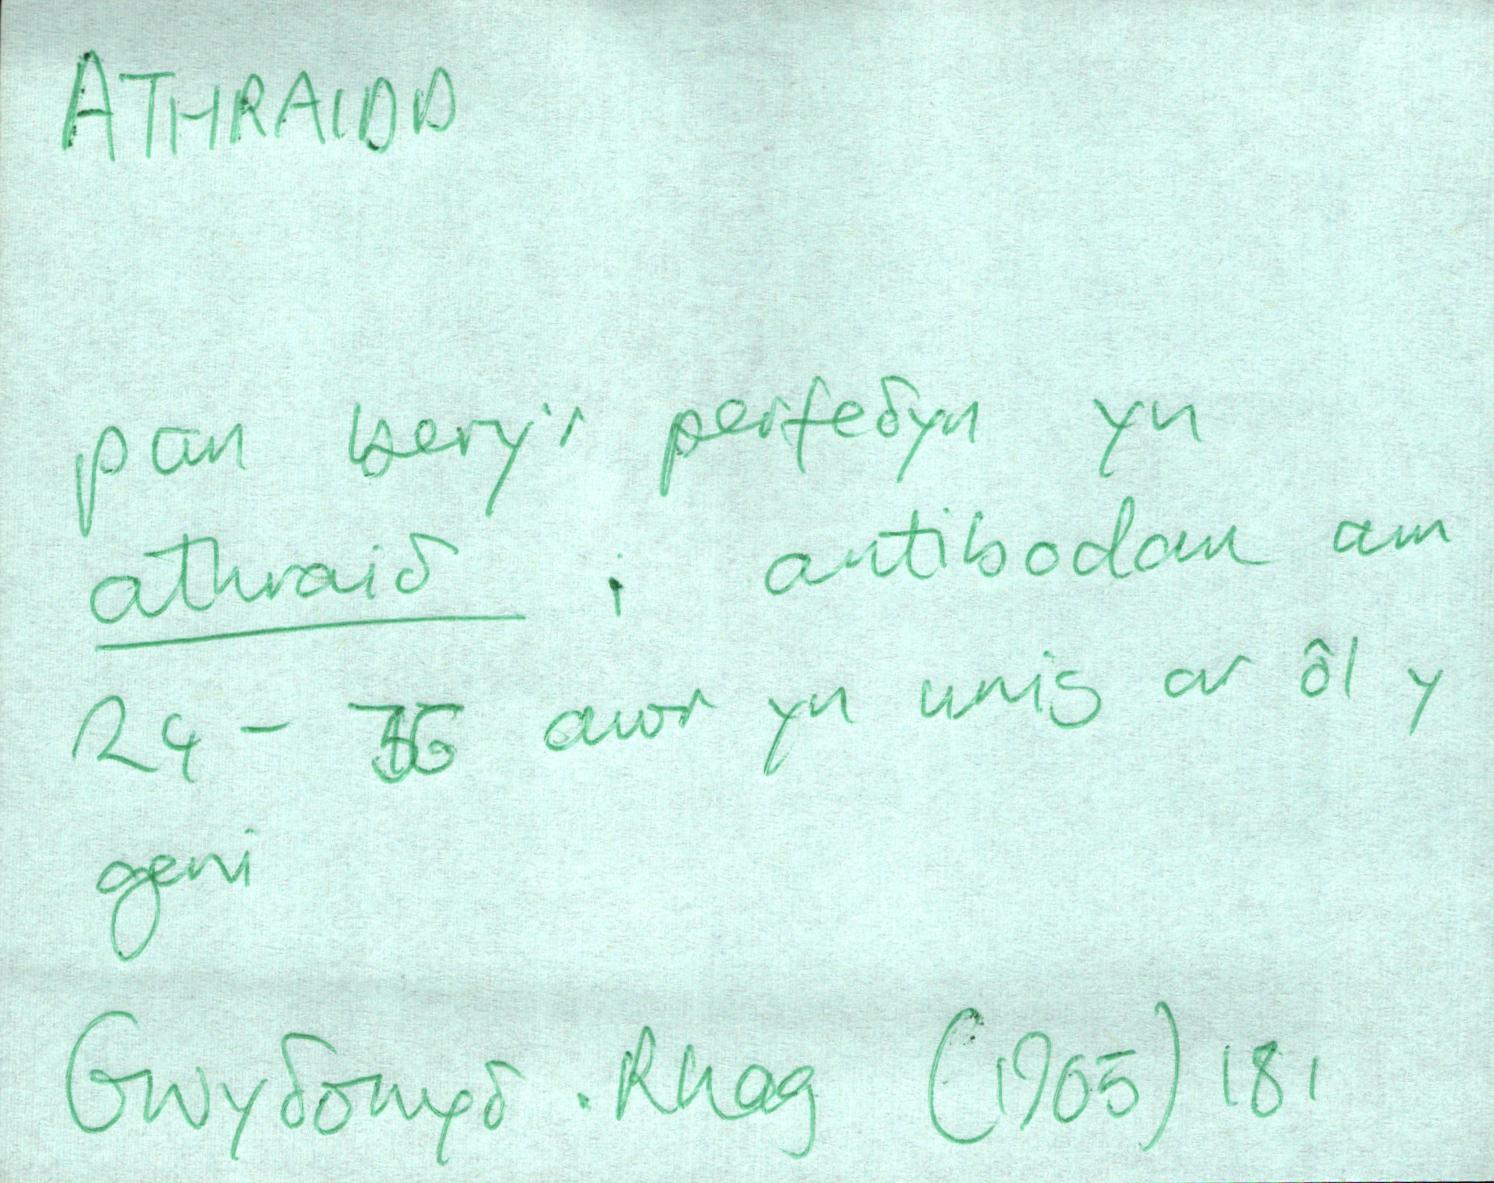 ATHRAIDD
pan bery'r perfeδyn yn
athraiδ i antibodau am
24 - 36 awr yn unig ar ôl y
geni
Gwyδonyδ. Rhag (1965) 181